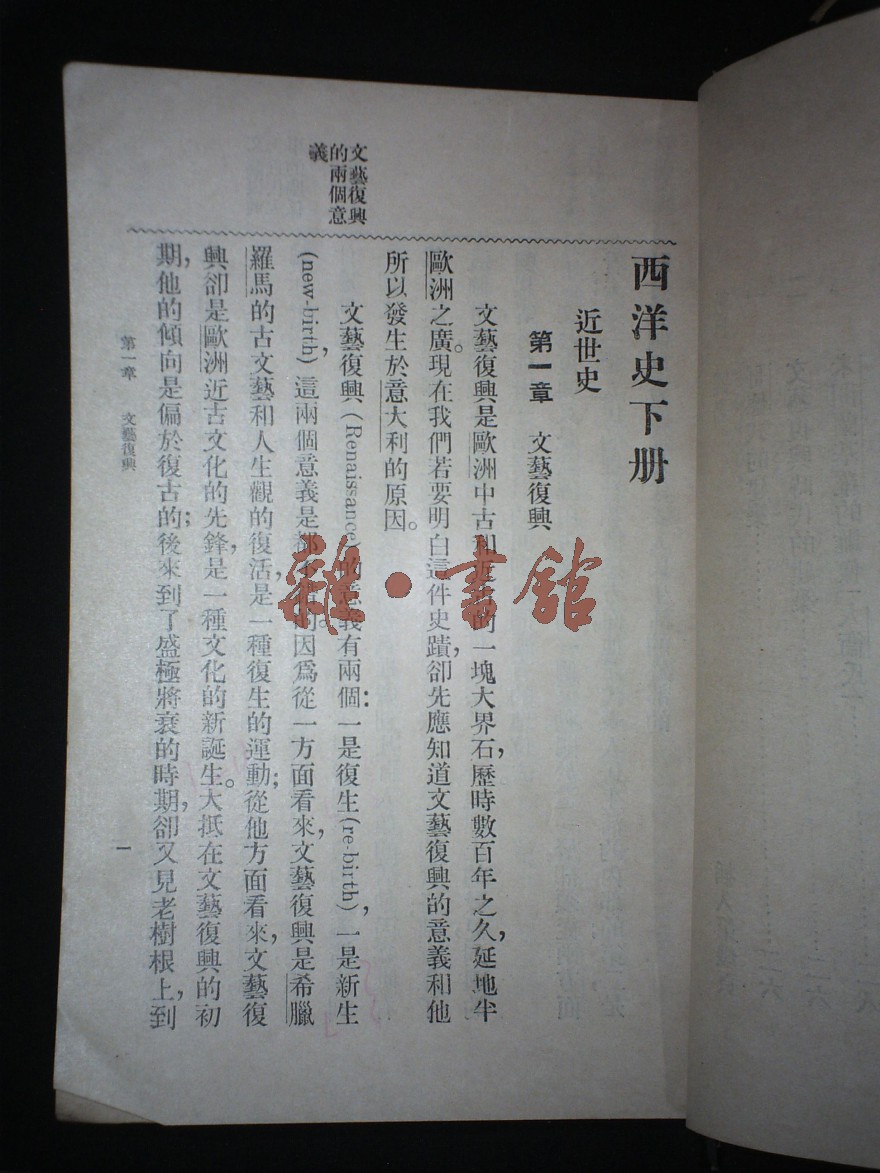 西洋史下册
近世史
第一章　文藝復興
文藝復興是歐洲中古和近的一塊大界石，歷時數百年之久，延地半
歐洲之廣。現在我們若要明白這件史蹟，卻先應知道文藝復興的意義和他
所以發生於意大利的原因。
文藝復興
的兩個意
義
文藝復興(Renaissance)的意義有兩個：一是復生(re-birth)，一是新生
(new-birth)，這兩個意義是都的。因爲從一方面看來，文藝復興是希臘
羅馬的古文藝和人生觀的復活，是一種復生的運動；從他方面看來，文藝復
興卻是歐洲近古文化的先鋒，是一種文化的新誕生。大抵在文藝復興的初
期，他的傾向是偏於復古的；後來到了盛極將衰的時期，卻又見老樹根上，到
第一章　文藝復興
一
雜·書館